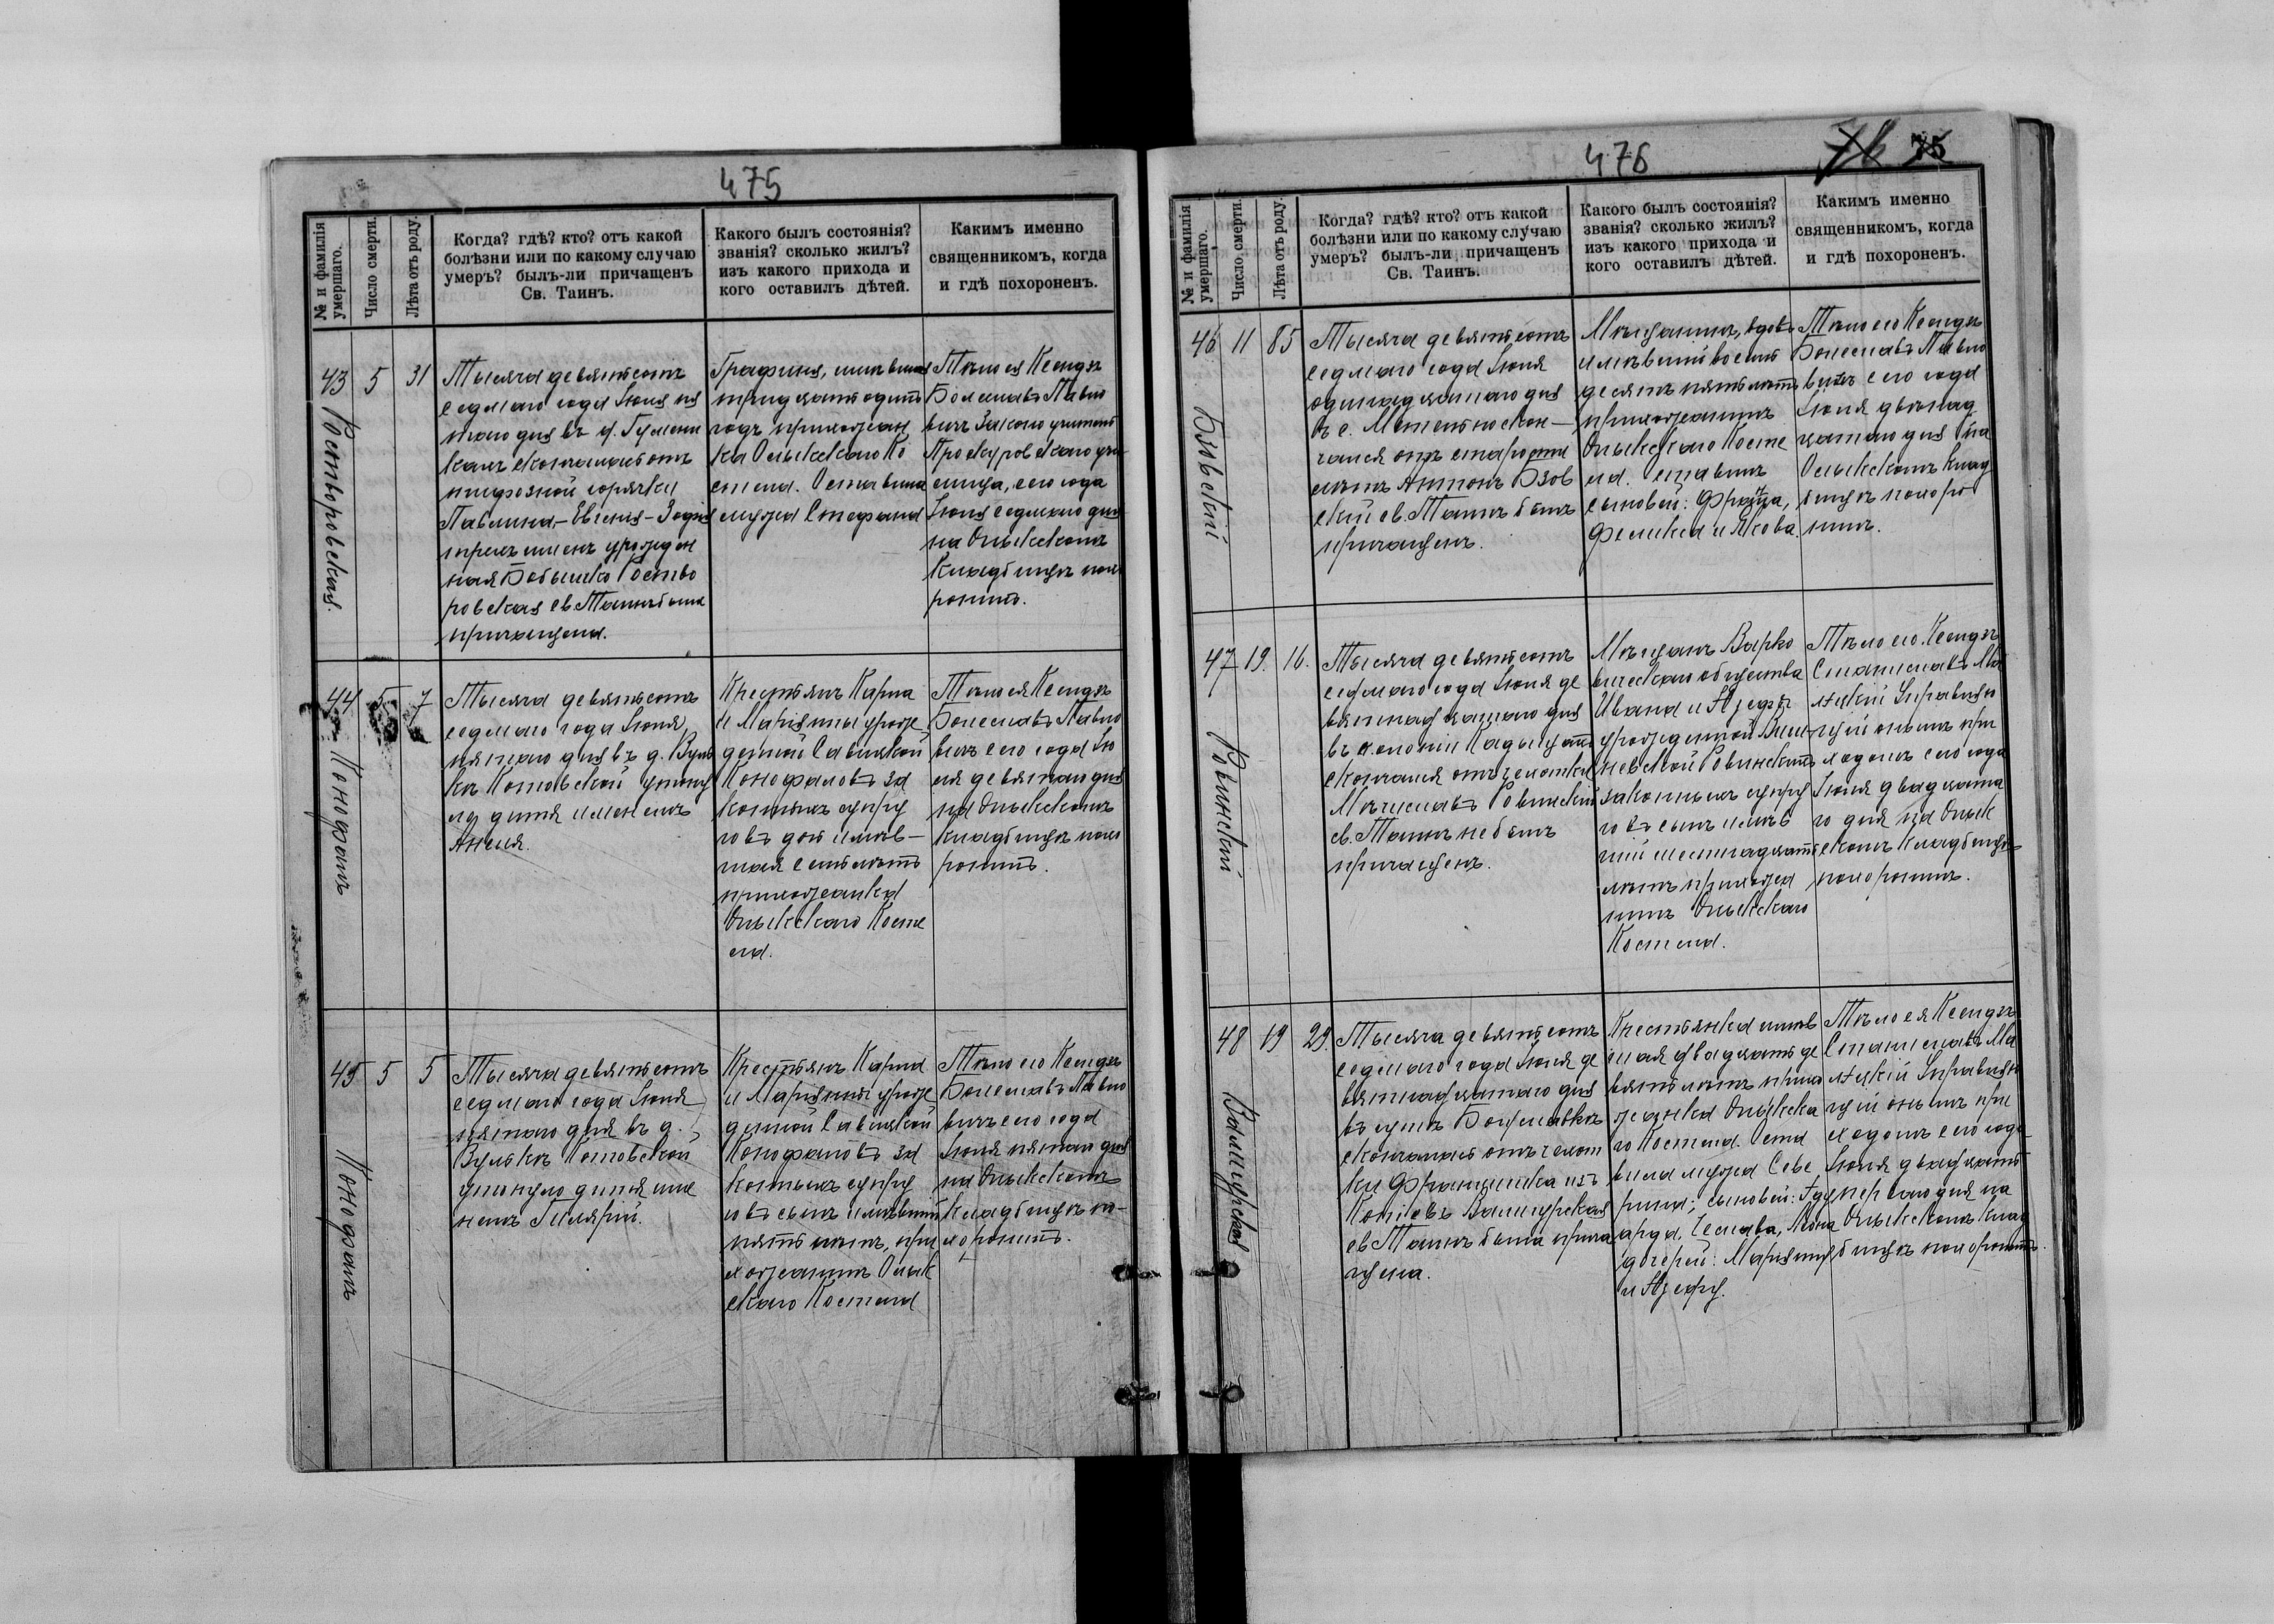 475
№ и фамилія
умершаго.
Число смерти.
Лѣта отъ роду.
Когда? гдѣ? кто? отъ какой
болѣзни или по какому случаю
умеръ? былъ-ли причащенъ
Св. Таинъ.
Какого былъ состоянія?
званія? сколько жилъ?
изъ какого прихода и
кого оставилъ дѣтей.
Каким­ъ именно
священникомъ, когда
и гдѣ похороненъ.
43
Ростворовская.
5
31
Тысяча девятьсотъ
седьмаго года Іюня пя
таго дня въ
скончалась отъ
тифозной горячки
Павлина-Евгенія-Зофія
трехъ именъ урожден
ная Бобышко Роство
ровская св. Таинъ была
причащена.
Графиня, имѣвшая
тридцать одинъ
годъ прихожан
ка Олыкскаго Ко
стела. Оставила
мужа Стефана
Тѣло ея Ксендзъ
Болеславъ Павло
вичъ Законоучитель
Проскуровскаго учи
лища, сего года
Іюня седьмаго дня
на Олыкскомъ
Кладбищѣ похо
ронилъ.
44
Конофалъ
5
7
Тысяча девятьсотъ
седьмаго года Іюня,
пятаго дня въ д. Вуль
кѣ Котовской утону
ло дитя именемъ
Анеля.
Крестьянъ Карла
и Маріянны урож
денной Савицкой
Конофаловъ за
конныхъ супру
говъ дочь имѣв-
шая семь лѣтъ
прихожанка
Олыкскаго Косте
ла.
Тѣло ея Ксендзъ
Болеславъ Павло
вичъ сего года Ію
ня девятаго дня
на Олыкскомъ
Кладбищѣ похо
ронилъ.
45
Конофалъ
5
5
Тысяча девятьсотъ
седьмаго года Іюня
пятаго дня въ д.
Вулькѣ Котовской
утонуло дитя име
немъ Гилярій.
Крестьянъ Карла
и Маріянны урож
денной Савицкой
Конофаловъ за
конныхъ супру
говъ сынъ имѣвшій
пять лѣтъ, при
хожанинъ Олык
скаго Костела
Тѣло его Ксендзъ
Болеславъ Павло
вичъ сего года
Іюня пятаго дня
на Олыкскомъ
Кладбищѣ по-
хоронилъ.
476
75
№ и фамилія
умершаго.
Число смерти.
Лѣта отъ роду.
Когда? гдѣ? кто? отъ какой
болѣзни или по какому случаю
умеръ? былъ-ли причащенъ
Св. Таинъ.
Какого былъ состоянія?
званія? сколько жилъ?
изъ какого прихода и
кого оставилъ дѣтей.
Какимъ именно
священникомъ, когда
и гдѣ похороненъ.
46
11
85
Тысяча девятьсотъ
седьмаго года Іюня
одинадцатаго дня
в с. скон-
чался отъ старости
лѣтъ Антонъ Бзов
скій св. Таинъ былъ
причащенъ.
Мѣщанинъ, вдовъ
имѣвшій восемь
десятъ пять лѣтъ
прихожанинъ
Олыкскаго Косте
ла. Оставилъ
сыновей: Франца,
Феликса и Якова.
Тѣло его Ксендзъ
Болеславъ Павло
вичъ сего года
Іюня двѣнад
цатаго дня на
Олыкскомъ Клад
бищѣ похоро
нилъ.
47
Ровинскій
19.
16.
Тысяча девятьсотъ
седьмаго года Іюня де
вятнадцатаго дня
въ колоніи
скончался отъ чахотки
Мѣчиславъ Ровинскій
св. Таинъ не былъ
причащенъ.
Мѣщанъ Варко
вическаго общества
Ивана и Юзефы
урожденной Виш
невской Ровинскихъ
законныхъ супру
говъ сынъ имѣв
шій шестнадцать
лѣтъ прихожа
нинъ Олыкскаго
Костела.
Тѣло его Ксендзъ
Станиславъ Ма
Управляю
щій онымъ при
ходомъ сего года
Іюня двадцата
го дня на Олык
скомъ Кладбищѣ
похоронилъ.
48
Валигурская
19
29.
Тысяча девятьсотъ
седьмаго года Іюня де
вятнадцатаго дня
въ
скончалась отъ чахот
ки Францишка изъ
Валигурская
св Таинъ была прича
щена.
Крестьянка имѣв
шая двадцать де
вять лѣтъ прихо
жанка Олыкска
го Костела. Оста
вила мужа Севе
рина; сыновей: Эду
арда, Чеслава, Леона
дочерей: Маріянну
и Юзефу.
Тѣло ея Ксендзъ
Станиславъ Ма
Управляю
щій онымъ при
ходомъ сего года
Іюня двадцать
перваго дня на
Олыкскомъ Клад
бищѣ похоронилъ.